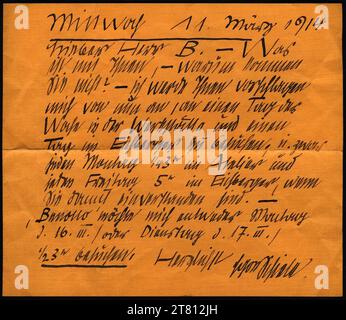 Mittwoch 11. März 1914
Lieber Herr B. – Was
ist mit Ihnen – warum kommen
Sie nicht? – ich werde Ihnen vorschlagen
mich von nun an, an einen Tag der
Woche in der Werkstätte und einen
Tag im Eisberger zu besuchen, u. zwar
jeden Montag ½3h im Atelier und
jeden Freitag 5h im Eisberger, wenn
Sie damit einverstanden sind. –
Benesch möchte mich entweder Montag
d. 16. III / oder Dienstag d. 17. III /
½3h besuchen. Herzlichst
Egon Schiele.
alamy
Image ID: 2T812JH
www.alamy.com